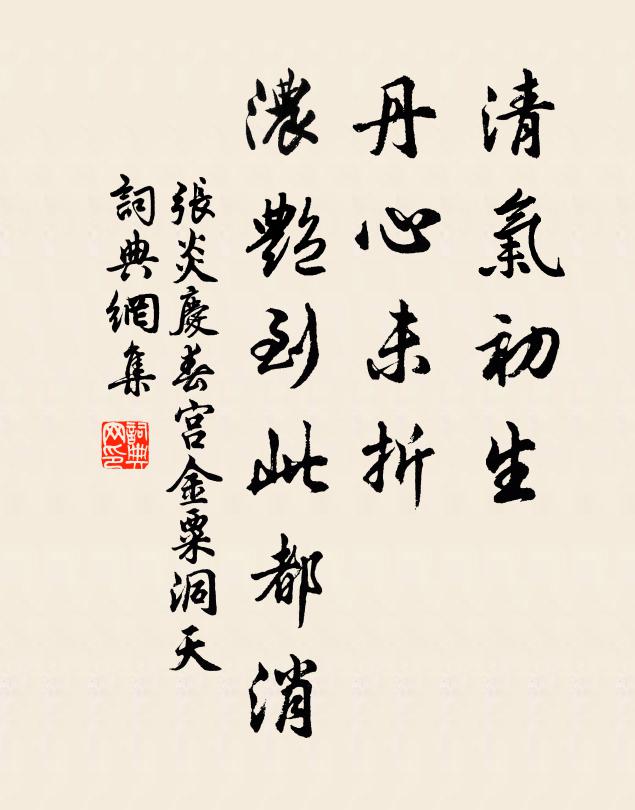 清氣初生
丹心未折
濃艷到此都消
張炎慶春宮金粟洞天
詞典網集
詞典網印